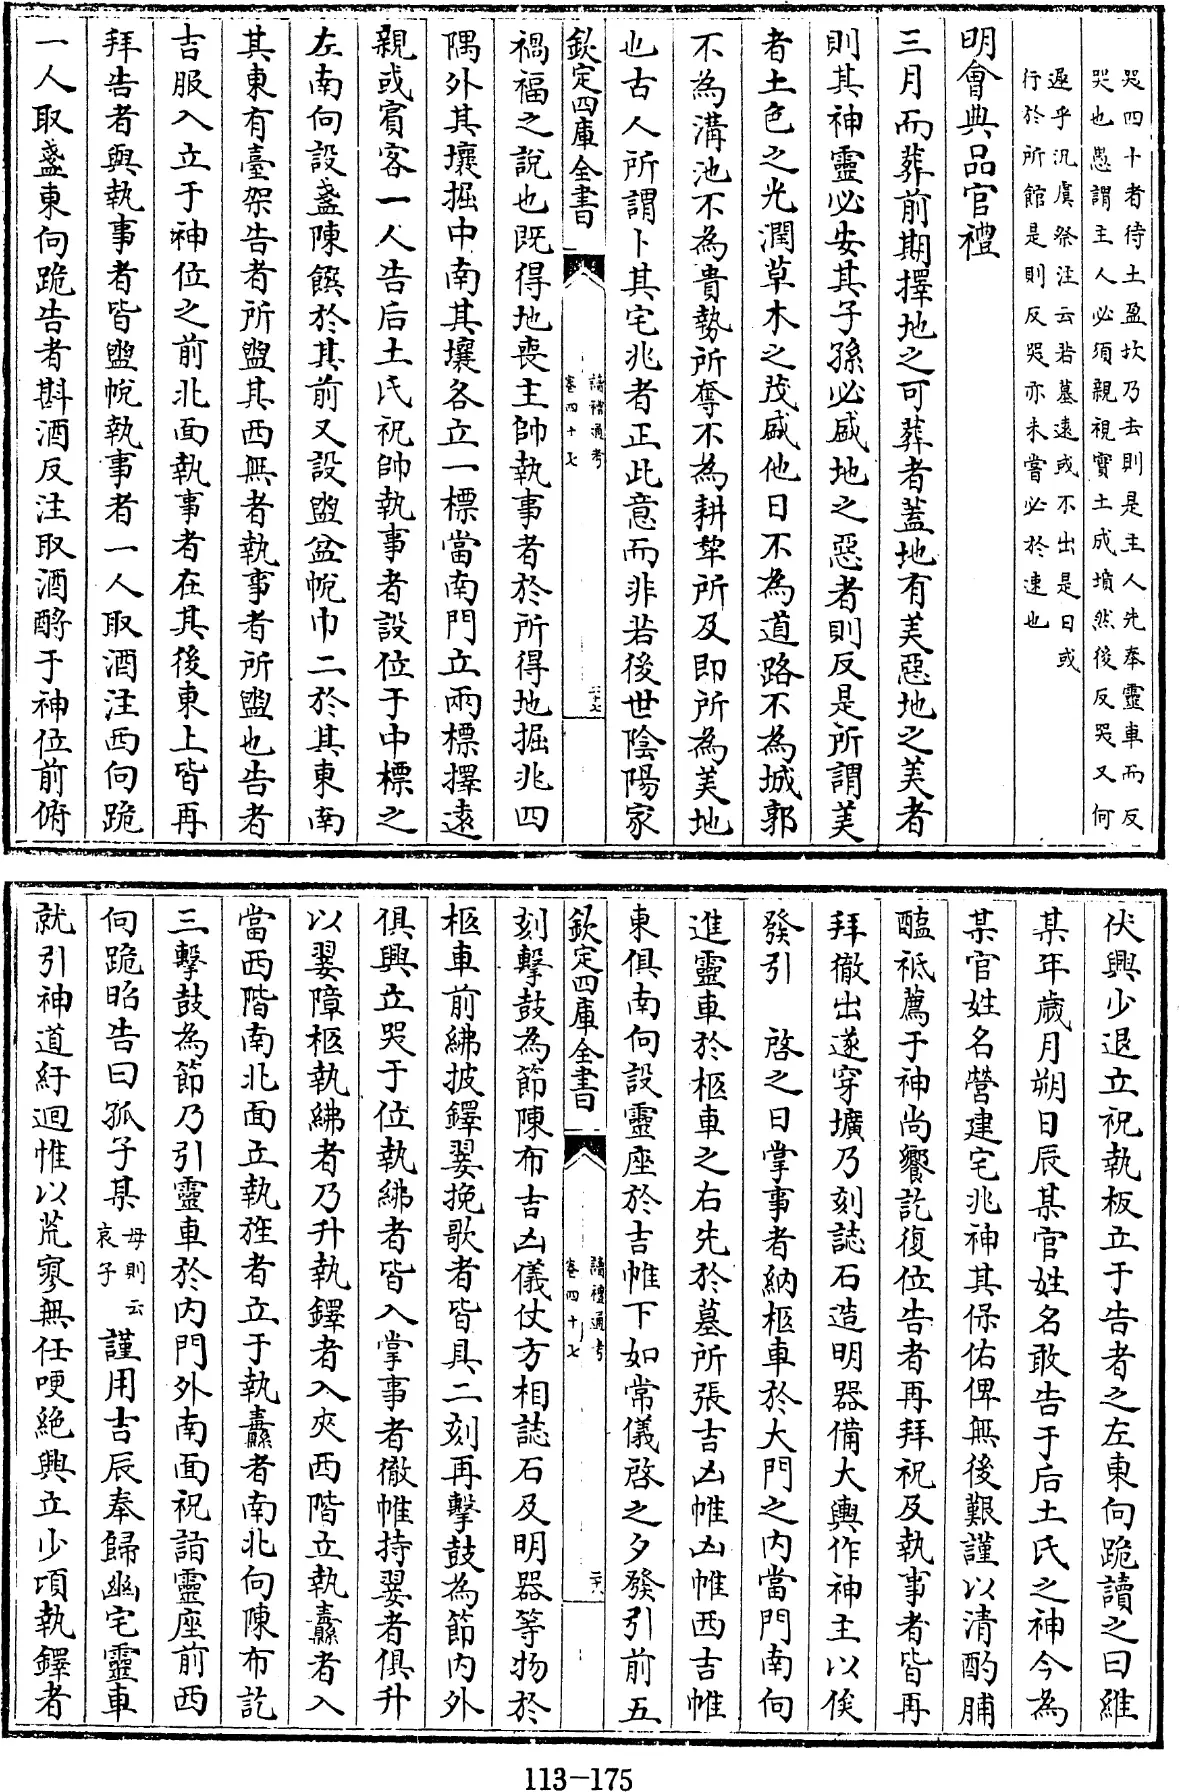 哭四十者待土盈坎乃去則是主人先奉靈車而反
哭也愚謂主人必須親視實土成墳然後反哭又何
遲乎況虞祭注云若墓遠或不出是日或
行於所館是則反哭亦未嘗必於速也
明會典品官禮
三月而葬前期擇地之可葬者蓋地有美惡地之美者
則其神靈必安其子孫必盛地之惡者則反是所謂美
者土色之光潤草木之茂盛他日不為道路不為城郭
不為溝池不為貴勢所奪不為耕犂所及即所為美地
也古人所謂卜其宅兆者正此意而非若後世陰陽家
欽定四庫全書
讀禮通考
卷四十七
二十七
禍福之說也既得地喪主帥執事者於所得地掘兆四
隅外其壤掘中南其壤各立一標當南門立兩標擇遠
親或賓客一人告后土氏祝帥執事者設位于中標之
左南向設盞陳饌於其前又設盥盆帨巾二於其東南
其東有臺架告者所盥其西無者執事者所盥也告者
吉服入立于神位之前北面執事者在其後東上皆再
拜告者與執事者皆盥帨執事者一人取酒注西向跪
一人取盞東向跪告者斟酒反注取酒酹于神位前俯
伏興少退立祝執板立于告者之左東向跪讀之曰維
某年歲月朔日辰某官姓名敢告于后土氏之神今為
某官姓名營建宅兆神其保佑俾無後艱謹以清酌脯
醢祗薦于神尚饗訖復位告者再拜祝及執事者皆再
拜徹出遂穿壙乃刻誌石造明器備大輿作神主以俟
發引　啓之日掌事者納柩車於大門之內當門南向
進靈車於柩車之右先於墓所張吉凶帷凶帷西吉帷
東俱南向設靈座於吉帷下如常儀啓之夕發引前五
欽定四庫全書
讀禮通考
卷四十七
二十八
刻擊鼓為節陳布吉凶儀仗方相誌石及明器等物於
柩車前紼披鐸翣挽歌者皆具二刻再擊鼓為節內外
俱興立哭于位執紼者皆入掌事者徹帷持翣者俱升
以翣障柩執紼者乃升執鐸者入夾西階立執纛者入
當西階南北面立執旌者立于執纛者南北向陳布訖
三擊鼓為節乃引靈車於內門外南面祝詣靈座前西
向跪昭告曰孤子某母則云哀子謹用吉辰奉歸幽宅靈車
就引神道紆迴惟以荒寥無任哽絶興立少頃執鐸者
113-175